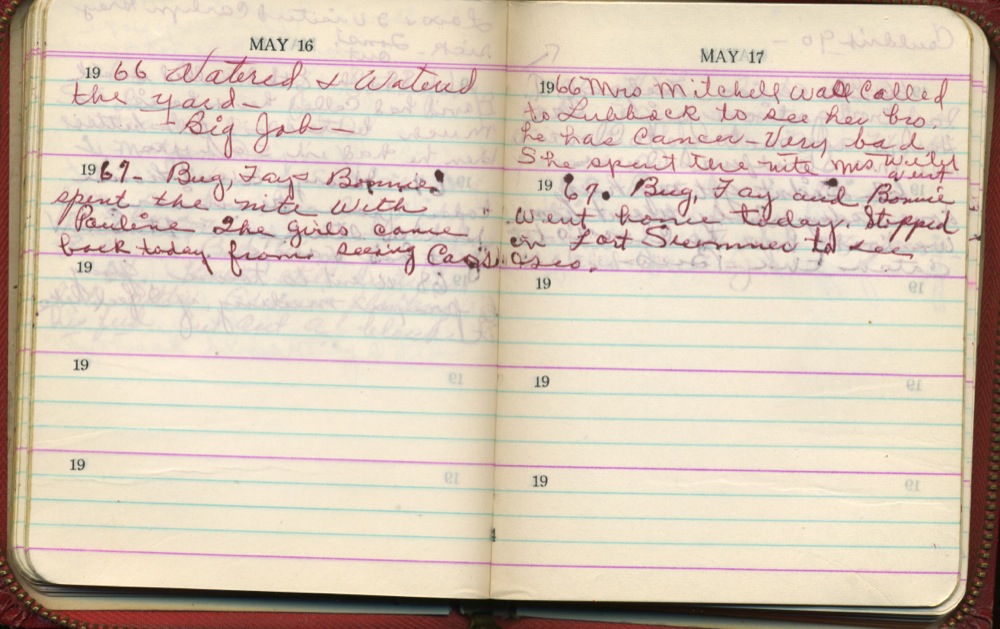 MAY 16
1966 Watered & Watered
the yard -
- Big Job -
1967 - Bug, Fay & Bonnie
spent the nite with
Pauline The girls came
back today from seeing
19
19
19
MAY 17
1966 Mrs Mitchell was called
to Lubbock to see her bro.
he has cancer - Very bad
She spent the nite Mrs
went
1967. Bug, Fay and Bonnie
went home today. Stopped
in Fort Sumner to see
19
19
19